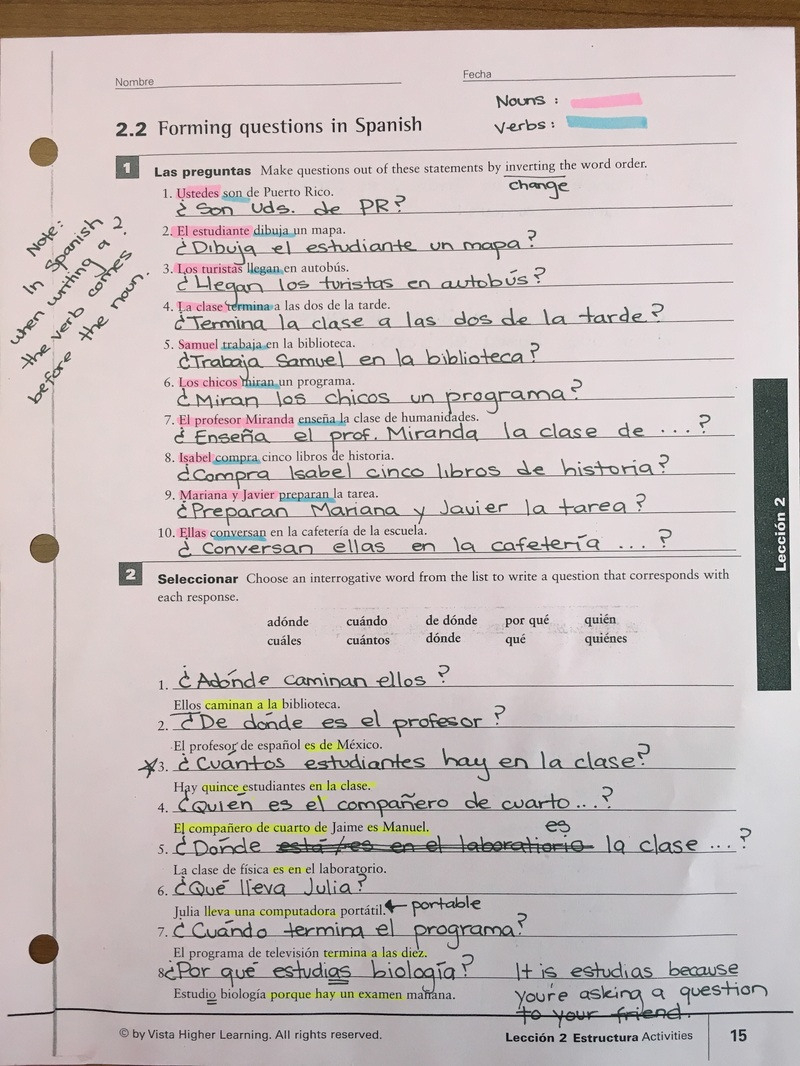 Nombre
Fecha
Nouns :
Verbs :
2.2 Forming questions in Spanish
1 Las preguntas Make questions out of these statements by inverting the word order.
change
1. Ustedes son de Puerto Rico.
¿ Son Uds. de PR?
2. El estudiante dibuja un mapa.
¿Dibuja el estudiante un mapa?
3. Los turistas llegan en autobús.
¿ Llegan los turistas en autobús?
4. La clase termina a las dos de la tarde.
¿Termina la clase a las dos de la tarde?
5. Samuel trabaja en la biblioteca.
¿Trabaja Samuel en la biblioteca?
6. Los chicos miran un programa.
¿ Miran los chicos un programa?
7. El profesor Miranda enseña la clase de humanidades.
¿ Enseña el prof. Miranda la clase de ...?
8. Isabel compra cinco libros de historia.
¿Compra Isabel cinco libros de historia?
9. Mariana y Javier preparan la tarea.
¿Preparan Mariana y Javier la tarea?
10. Ellas conversan en la cafetería de la escuela.
¿ Conversan ellas en la cafetería ...?
Note:
In Spanish
when writing a ?
the verb comes
before the noun.
2 Seleccionar Choose an interrogative word from the list to write a question that corresponds with
each response.
adónde cuándo de dónde por qué quién
cuáles cuántos dónde qué quiénes
1. ¿Adónde caminan ellos?
Ellos caminan a la biblioteca.
2. ¿De dónde es el profesor?
El profesor de español es de México.
3. ¿Cuántos estudiantes hay en la clase?
Hay quince estudiantes en la clase.
4. ¿Quién es el compañero de cuarto...?
El compañero de cuarto de Jaime es Manuel.
es
5. ¿Dónde está/es en el laboratiorio la clase ...?
La clase de física es en el laboratorio.
6. ¿Qué lleva Julia?
Julia lleva una computadora portátil. ← portable
7. ¿Cuándo termina el programa?
El programa de televisión termina a las diez.
8. ¿Por qué estudias biología? It is estudias because
Estudio biología porque hay un examen mañana. you're asking a question
to your friend.
© by Vista Higher Learning. All rights reserved.
Lección 2 Estructura Activities 15
Lección 2